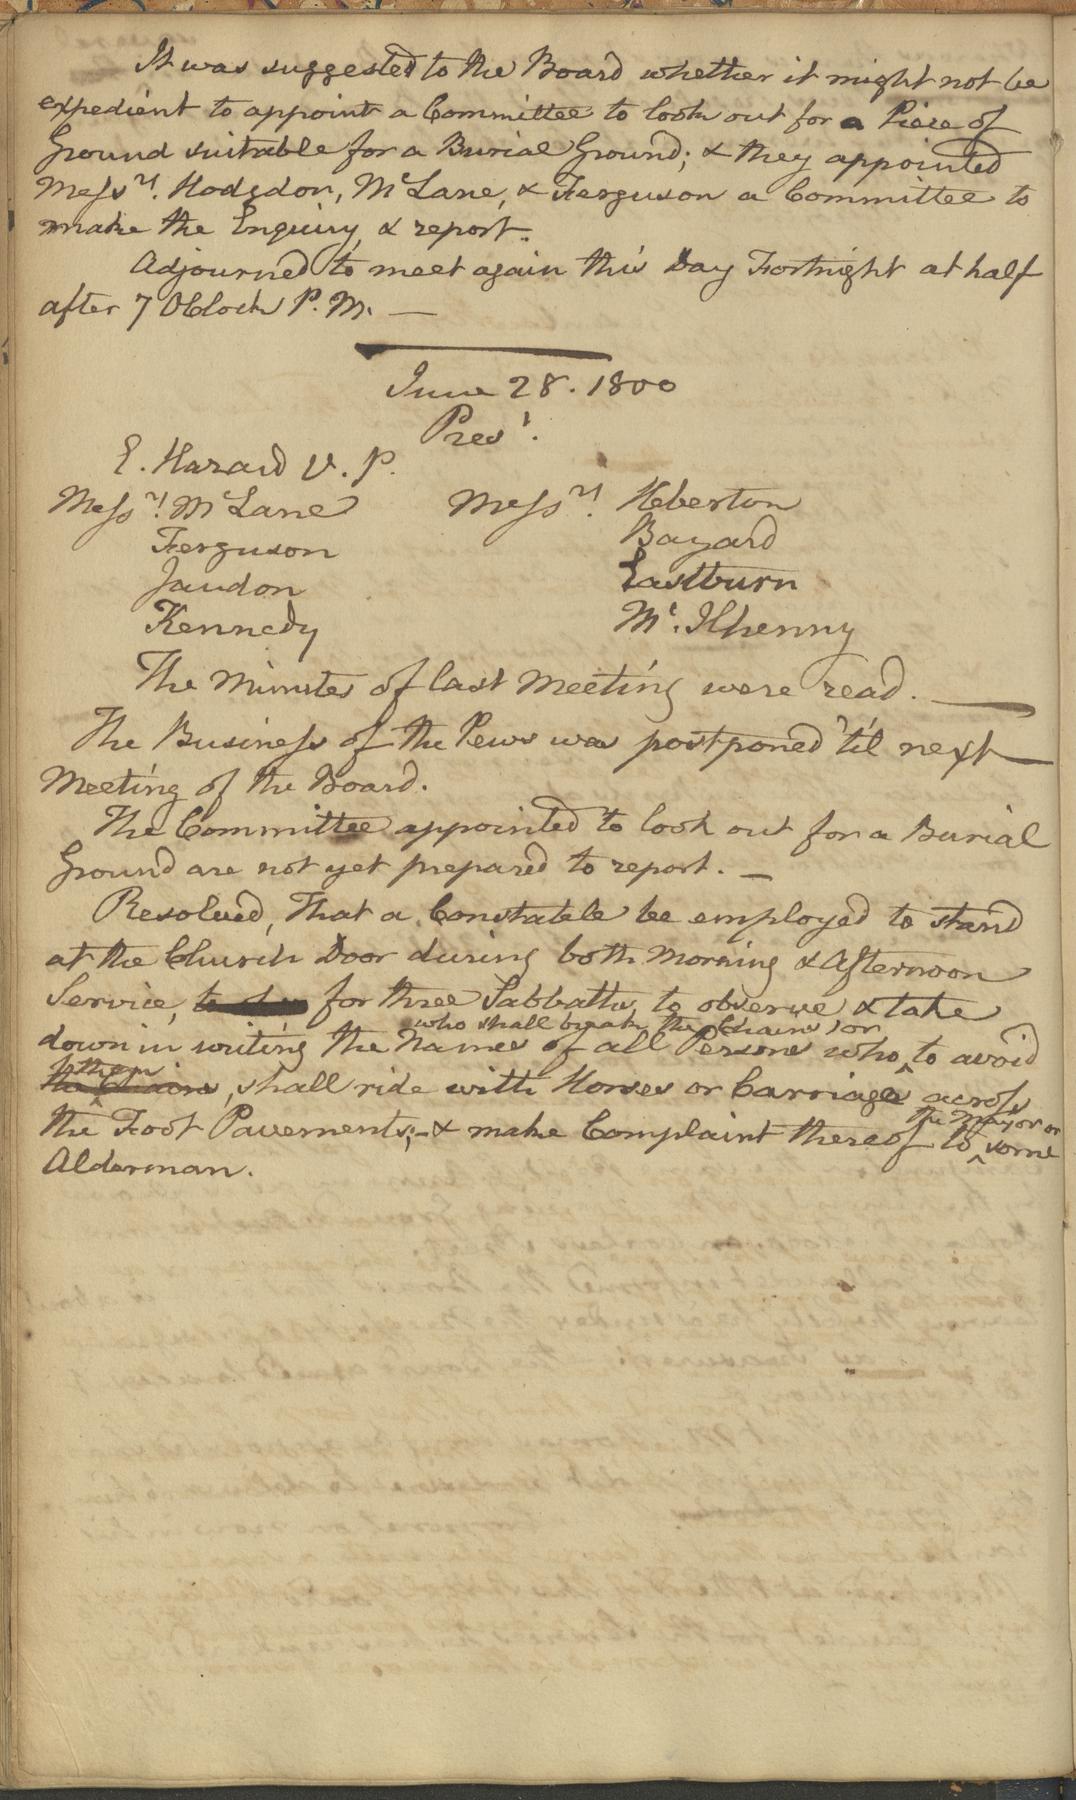 It was suggested to the Board whether it might not be
expedient to appoint a Committee to look out for a Piece of
Ground suitable for a Burial Ground; & they appointed
Messrs. Hodgdon, McLane, & Ferguson a Committee to
make the Enquiry & report.
Adjourned to meet again this Day Fortnight at half
after 7 OClock P. M. —
June 28. 1800
Prest.
E. Hazard V. P.
Messrs. McLane
Ferguson
Jaudon
Kennedy
Messrs. Heberton
Bayard
Eastburn
Mc. Ilhenny
The Minutes of last Meeting were read. —
The Business of the Pews was postponed 'til next
Meeting of the Board.
The Committee appointed to look out for a Burial
Ground are not yet prepared to report. —
Resolved, That a Constable be employed to stand
at the Church Door during both Morning & Afternoon
Service, for three Sabbaths, to observe & take
who shall break the Chains, or
down in writing the Names of all Persons who ^ to avoid
them
the Chains, shall ride with Horses or Carriage across
the Mayor or
the Foot Pavements; — & make Complaint thereof to ^ some
Alderman.